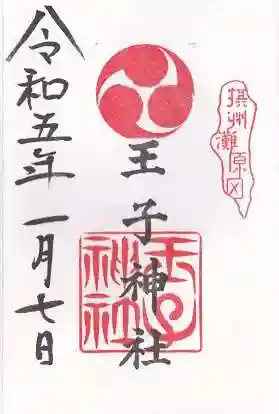 摂州
灘原
王子神社
王子
神社
令和五年一月七日